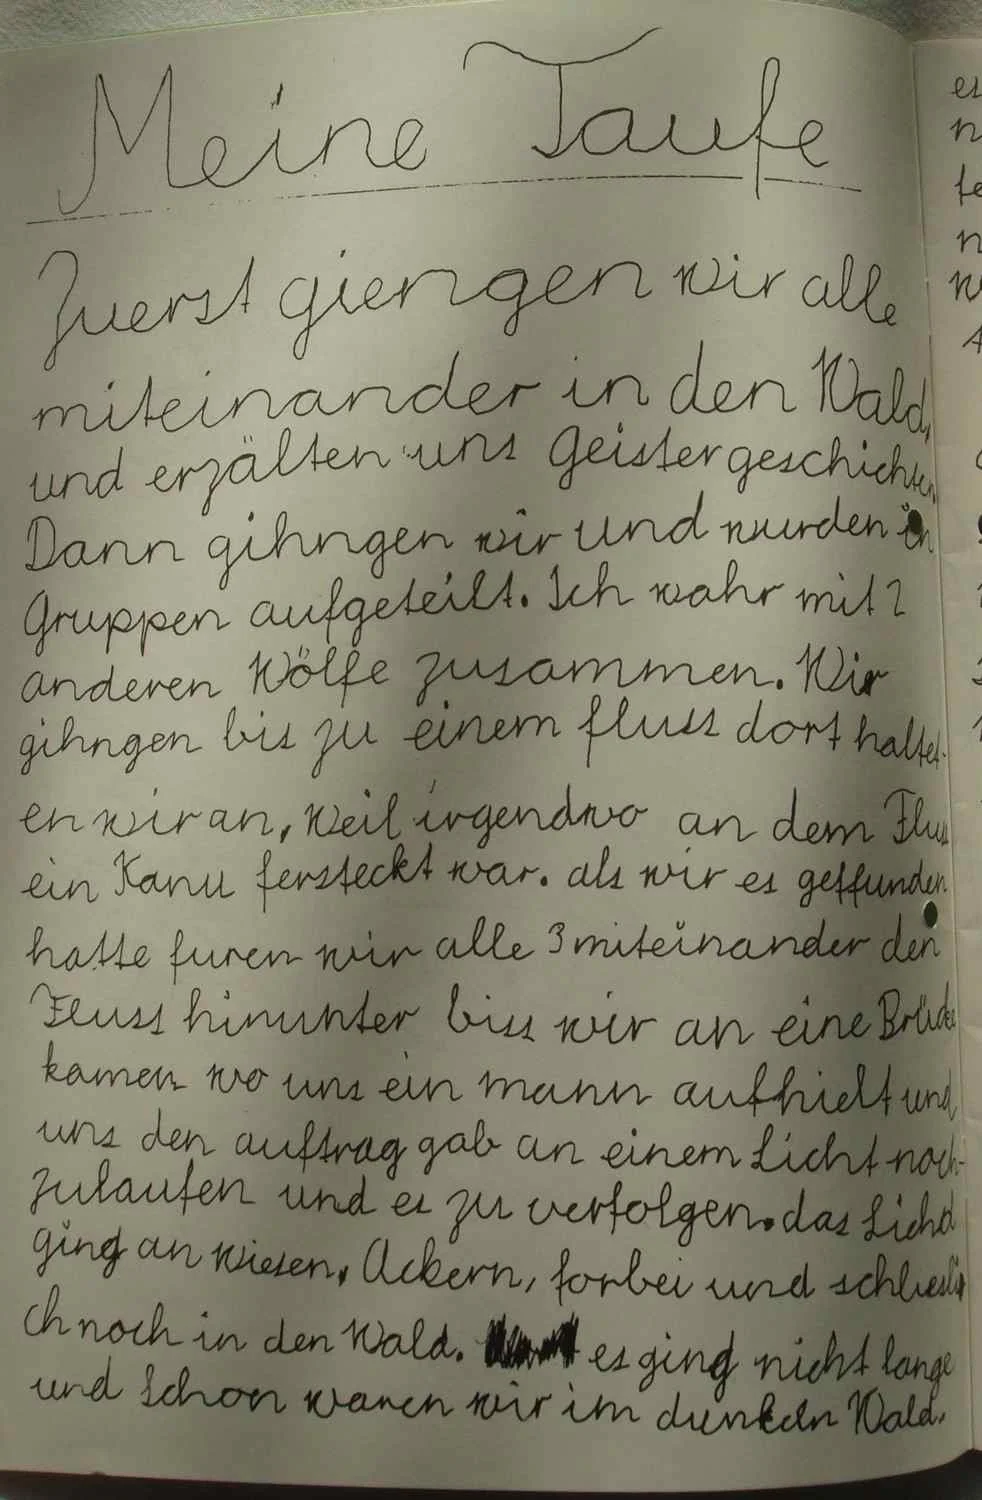 Meine Taufe
Zuerst giengen wir alle
miteinander in den Wald,
und erzälten uns Geistergeschichten
Dann gihngen wir und wurden in
Gruppen aufgeteilt. Ich wahr mit 2
anderen Wölfe zusammen. Wir
gihngen bis zu einem fluss dort haltet-
en wir an, weil irgendwo an dem Fluss
ein Kanu fersteckt war. als wir es geffunden
hatte furen wir alle 3 miteinander den
Fluss hinunter biss wir an eine Brücke
kamen wo uns ein mann aufhielt und
uns den auftrag gab an einem Licht nach-
zulaufen und es zu verfolgen. das Lichd
ging an wiesen, Ackern, forbei und schliesli
ch noch in den Wald. es ging nicht lange
und schon waren wir im dunkeln Wald.
es
n
te
n
w